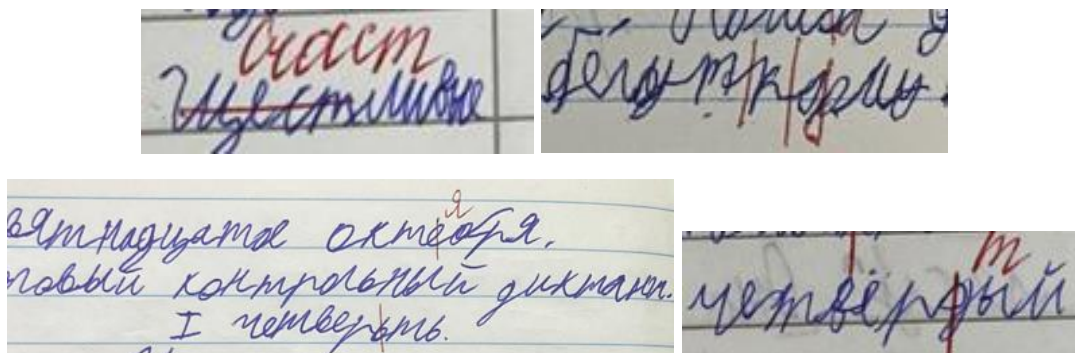 счаст
щестливые
бегут к дому.
вятнадцатое октеобря.
я
говый контрольный диктант.
I четверьть.
т
четвёрдый